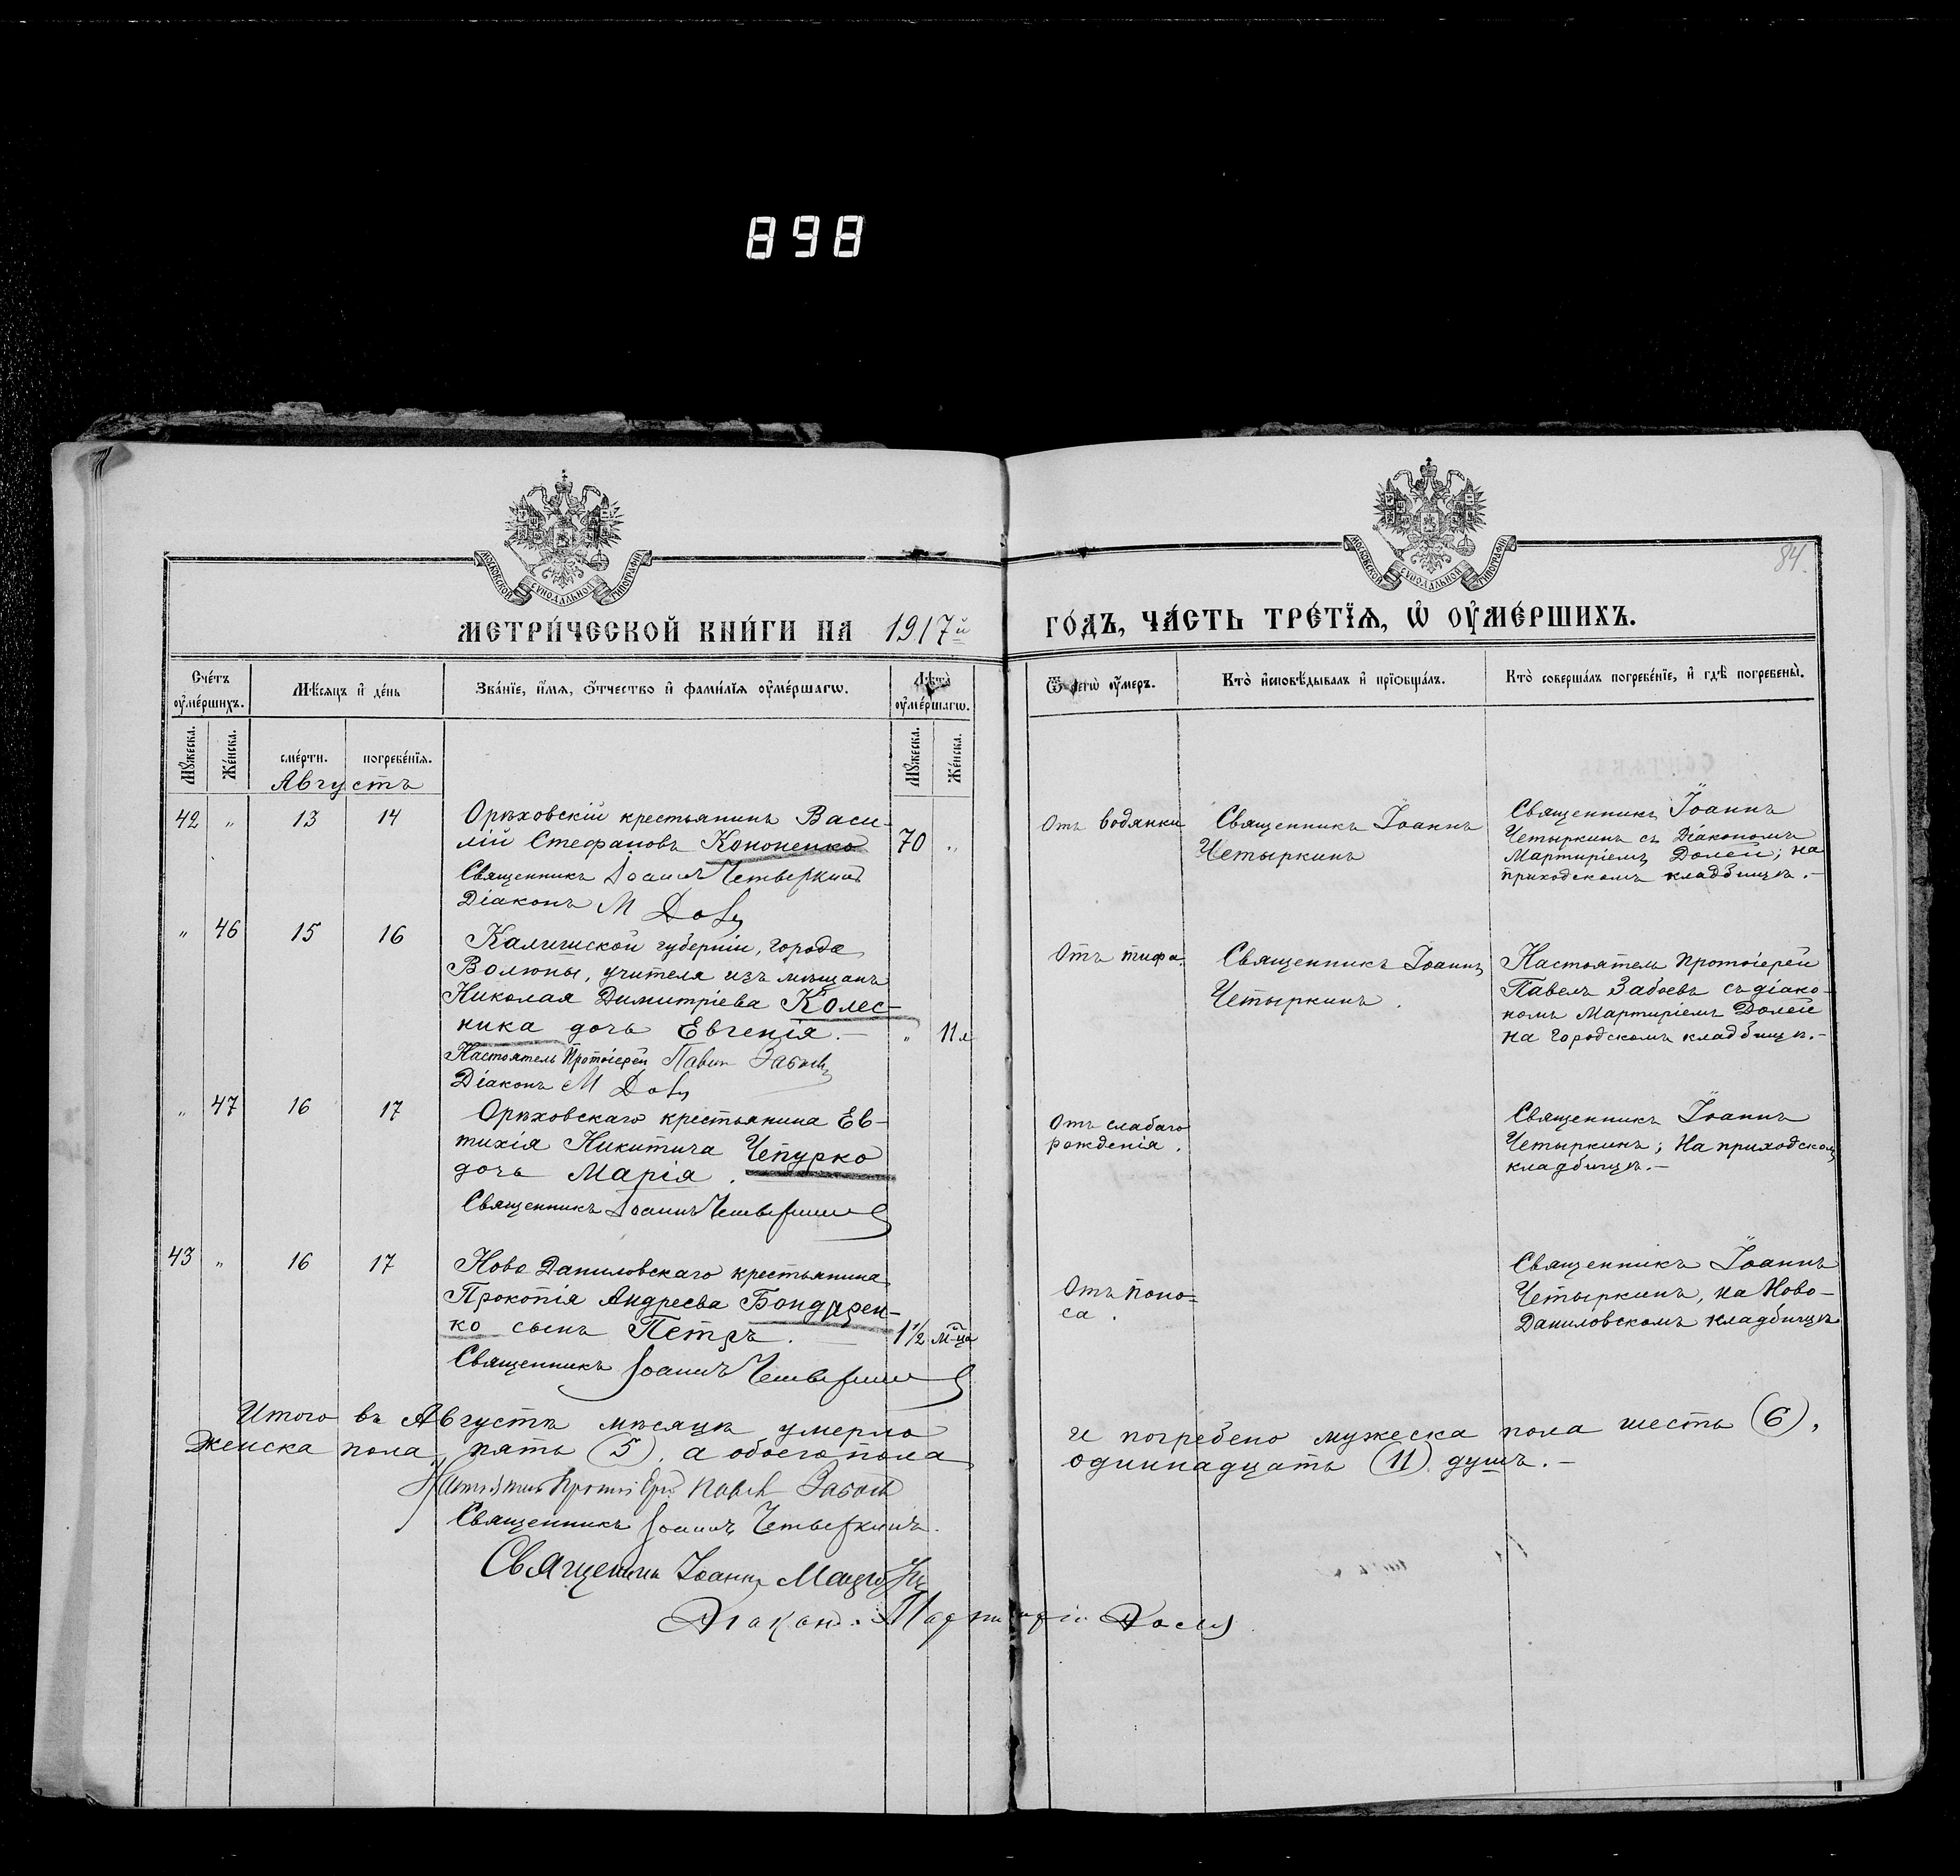 898
МОСКОВСКОЙ СѴНОДАЛЬНОЙ ТИПОГРАФІИ
МОСКОВСКОЙ СѴНОДАЛЬНОЙ ТИПОГРАФІИ
84.
МЕТРИ́ЧЕСКОЙ КНИ́ГИ НА 1917й
ГО́ДЪ, ЧА́СТЬ ТРЕ́ТЇѦ, Ѡ҆ ОУ҆МЕ́РШИХЪ.
Сче́тъ оу҆ме́ршихъ.
Мѣ́сяцъ и҆ де́нь
Зва́нїе, и҆́мя, ѻ҆́тчество и҆ фами́лїя оу҆ме́ршагѡ.
Лѣ́та оу҆ме́ршагѡ.
Ѿ чегѡ̀ оу҆́меръ.
Кто̀ и҆сповѣ́дывалъ и҆ прїѻбща́лъ.
Кто̀ соверша́лъ погребе́нїе, и҆ гдѣ̀ погребены̀.
Му́жеска.
Же́нска.
сме́рти.
погребе́нїя.
Му́жеска.
Же́нска.
Августъ
42 " 13 14
Орѣховскій крестьянинъ Васи-
лій Стефановъ Кононенко
70 "
Священникъ Іоаннъ Четыркинъ
Діаконъ М Долу
Отъ водянки
Священникъ Іоаннъ
Четыркинъ
Священникъ Іоаннъ
Четыркинъ съ Діакономъ
Мартиріемъ Долей; на
приходскомъ кладбищѣ.-
" 46 15 16
Калишской губерніи, города
Волюны, учителя изъ мѣщанъ
Николая Димитріева Колес-
ника дочь Евгенія.-
" 11 л
Настоятель Протоіерей Павелъ Забоевъ
Діаконъ М Долу
Отъ тифа.
Священникъ Іоаннъ
Четыркинъ.
Настоятель Протоіерей
Павелъ Забоевъ съ діако-
номъ Мартиріемъ Долей
на Городскомъ кладбищѣ.-
" 47 16 17
Орѣховскаго крестьянина Ев-
тихія Никитича Чепурко
дочь Марія.
Священникъ Іоаннъ Четыркинъ
Отъ слабаго
рожденія.
Священникъ Іоаннъ
Четыркинъ; На приходскомъ
кладбищѣ.-
43 " 16 17
Ново Даниловскаго крестьянина
Прокопія Андреева Бондарен-
ко сынъ Петръ.
1½ м-ца
Священникъ Іоаннъ Четыркинъ
Отъ поно=
са.
Священникъ Іоаннъ
Четыркинъ, на Ново-
Даниловскомъ кладбищѣ
Итого въ Августѣ мѣсяцѣ умерло и погребено мужеска пола шесть (6),
Женска пола, пять (5), а обоего пола одиннадцать (11) душъ.-
Настоятель Протоіерей Павелъ Забоевъ
Священникъ Іоаннъ Четыркинъ.
Священникъ Іоаннъ
Діаконъ Мартирій Долу